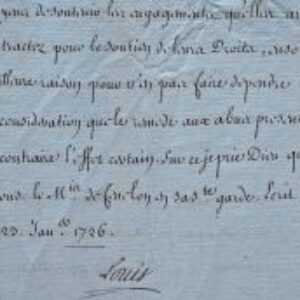 de soutenir les engagements qu'elles
tractez pour le soutien de leurs Droits,
raison pour n'en pas faire dépendre
considération que le remede aux abus
contraire l'effet certain. Sur ce je prie Dieu qu
ous. M. le Mis de sa Ste garde. Ecrit
23. Janr 1726.
Louis